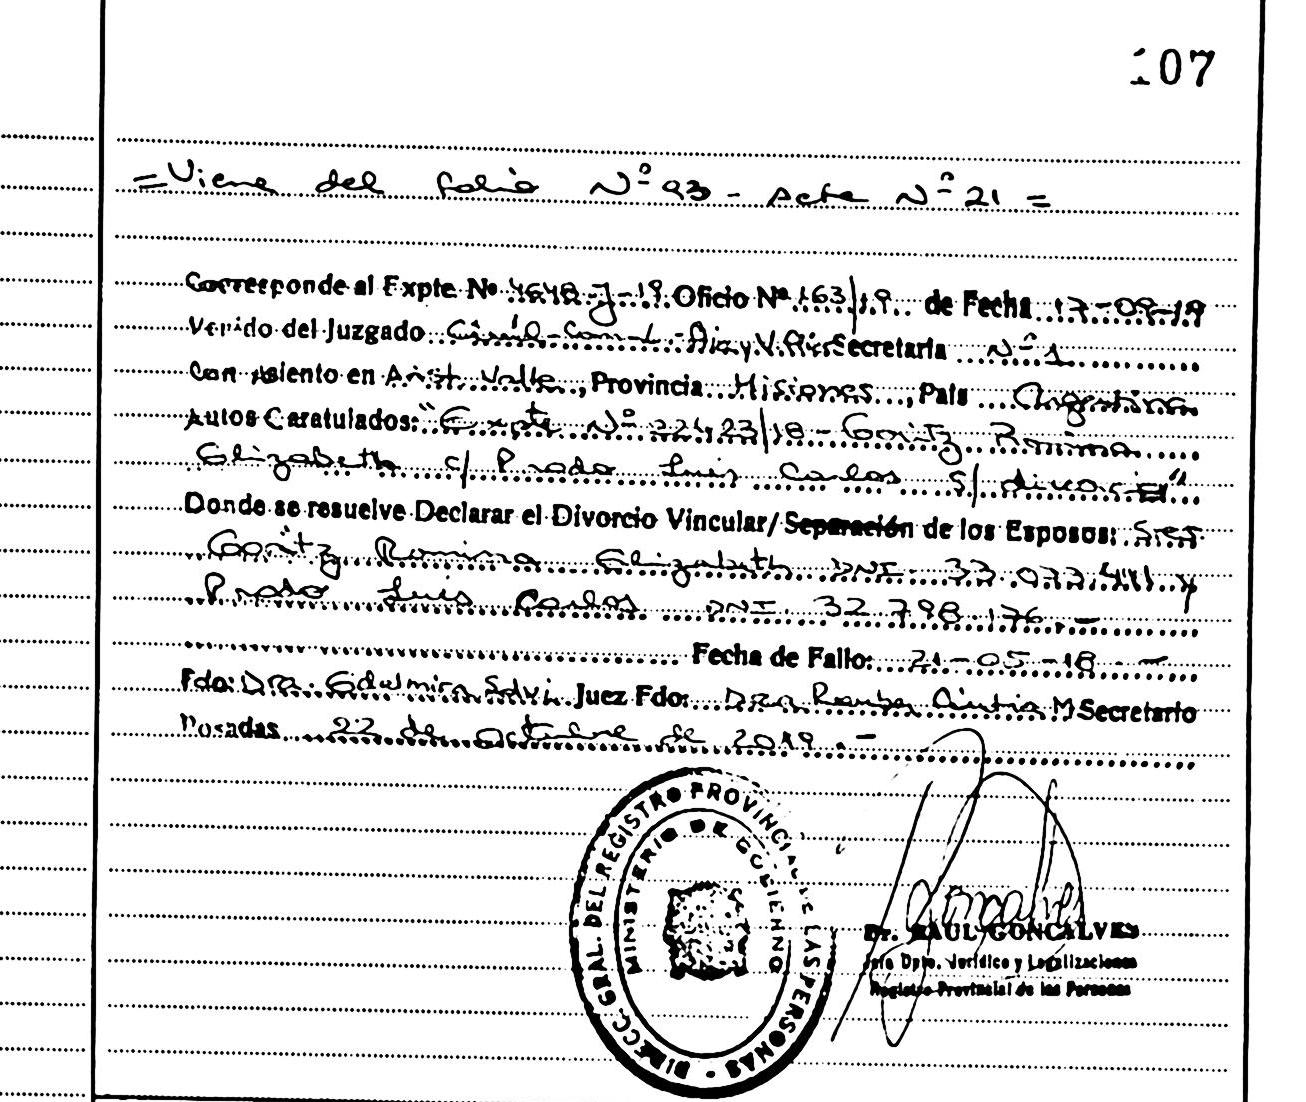 107
= Viene del folio Nº 93 - Acta Nº 21 =
Corresponde al Expte Nº 4648-J-19 Oficio Nº 163/19 de Fecha 17-09-19
Venido del Juzgado Civil-Com-L- Secretaria Nº 1
Con Asiento en Arist. Valle, Provincia Misiones, País Argentina
Autos Caratulados: "Expte Nº 22423/18 - Goritz Romina
Elizabeth c/ Prado Luis Carlos S/ divorcio"
Donde se resuelve Declarar el Divorcio Vincular/Separación de los Esposos: Sres
Goritz Romina Elizabeth DNI. 33.073.441 y
Prado Luis Carlos DNI. 32.798.176.-
Fecha de Fallo: 21-05-18.-
Fdo: Dra. Edelmira Juez Fdo: Dra Cintia M Secretario
Posadas 22 de octubre de 2019.-
DIRECC. GRAL. DEL REGISTRO PROVINCIAL DE LAS PERSONAS -
MINISTERIO DE GOBIERNO
Dr. RAUL GONCALVES
Jefe Dpto. Jurídico y Legalizaciones
Registro Provincial de las Personas